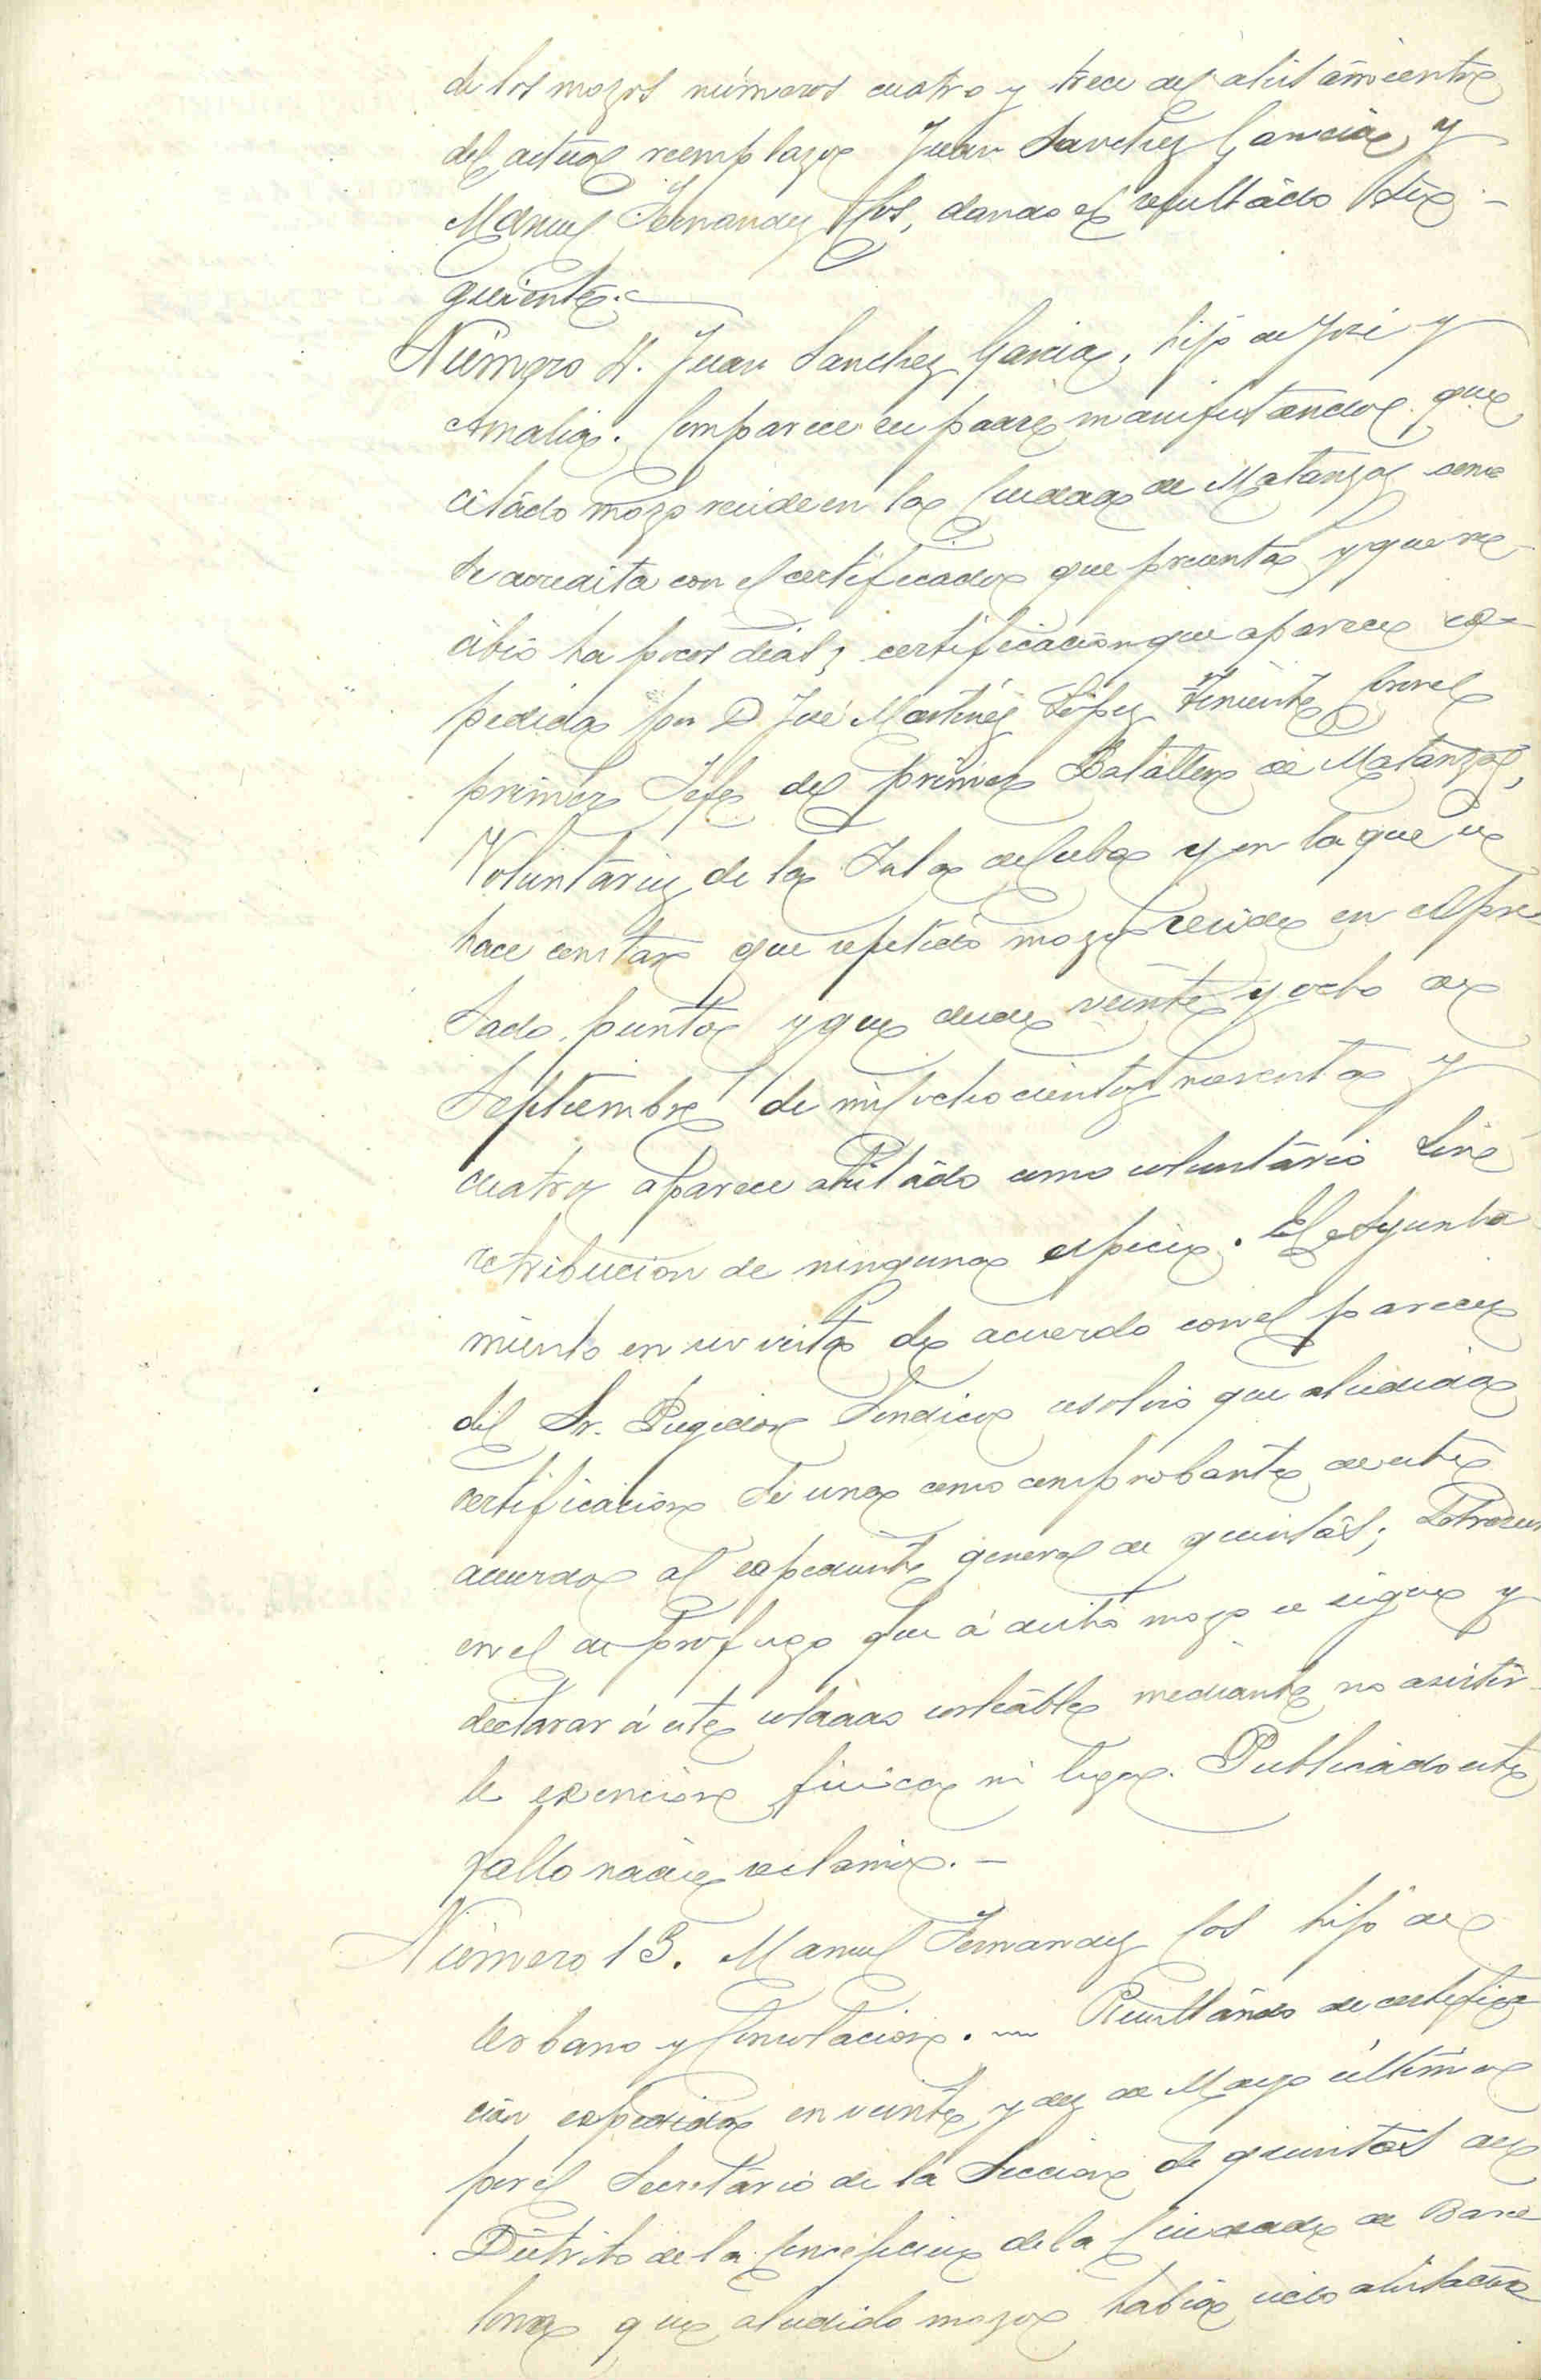 de los mozos números cuatro y trece del alistamiento
del actual reemplazo Juan Sanchez Garcia, y
Manuel Fernandez Cos, dando el resultado si-
guiente.
Número 4. Juan Sanchez Garcia, hijo de José y
Amalia. Comparece su padre manifestando que
citado mozo reside en la Ciudad de Matanzas como
se acredita con el certificado que presenta y que re-
cibió ha pocos dias, certificacion que aparece es-
pedida por D José Martínez López Teniente Coronel
primer Jefe del primer Batallon de Matanzas,
Voluntarios de la Isla de Cuba y en la que se
hace constar que repetido mozo reside en espre
sado punto y que desde veinte y ocho de
Septiembre de mil ochocientos noventa y
cuatro aparece alistado como voluntario sin
retribucion de ninguna especie. El Ayunta
miento en su vista de acuerdo con el parecer
del Sr. Regidor Sindico resolvió que aludida
certificacion se una como comprobante de este
acuerdo al espediente general de quintas;
en el de prófugo que á dicho mozo se sigue y
declarar á este soldado sorteable mediante no asistir-
le exencion fisica ni legal. Publicado este
fallo nadie reclamó. —
Número 13. Manuel Fernandez Cos hijo de
Urbano y Consolacion. — Resultando de certifica
ción espedida en veinte y dos de Mayo último
por el Secretario de la Seccion de quintas del
Distrito de la Concepcion de la Ciudad de Barce
lona que aludido mozo habia sido alistado